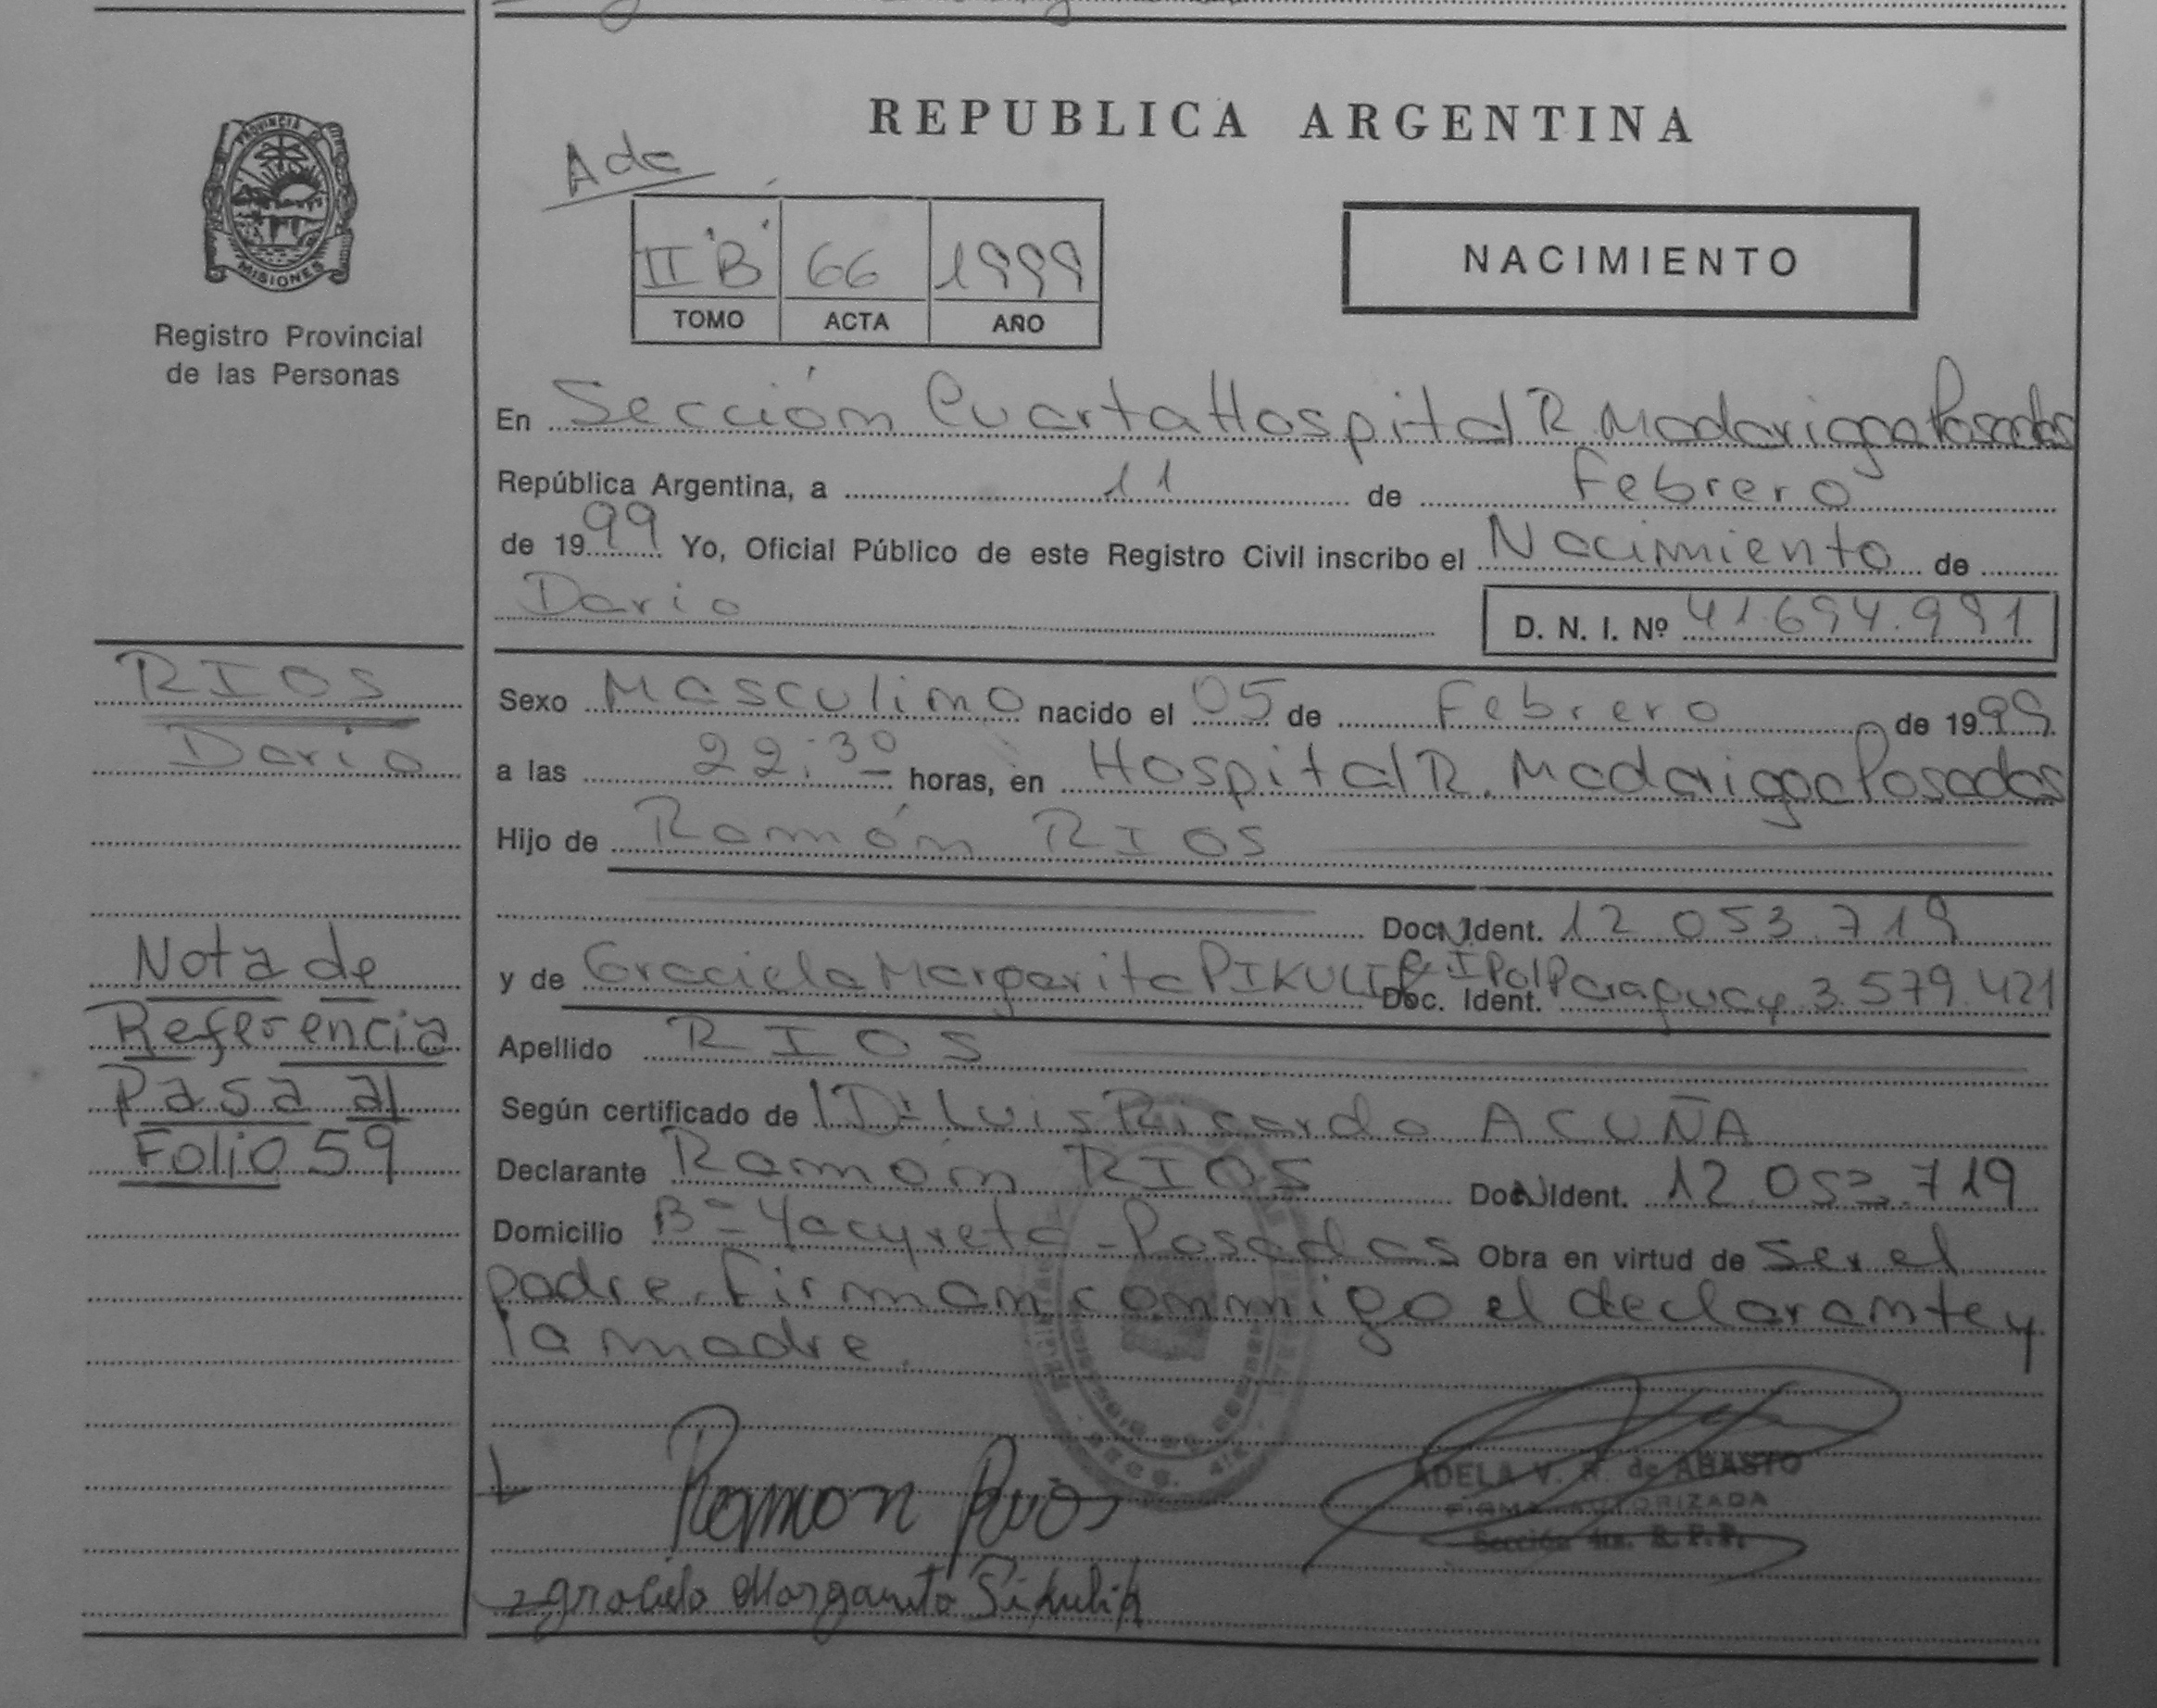 REPUBLICA ARGENTINA
Ade
II "B" 66 1999
TOMO ACTA AÑO
NACIMIENTO
PROVINCIA
MISIONES
Registro Provincial
de las Personas
En Sección Cuarta Hospital R. Madariaga Posadas
República Argentina, a 11 de Febrero
de 1999 Yo, Oficial Público de este Registro Civil inscribo el Nacimiento de
Dario
D. N. I. Nº 41.694.991
RIOS
Dario
Sexo Masculino nacido el 05 de Febrero de 1999
a las 22:30 horas, en Hospital R. Madariaga Posadas
Hijo de Ramón RIOS
Doc. Ident. 12.053.719
y de Graciela Margarita C.I.Pol Paraguay
Doc. Ident. 3.579.421
Apellido RIOS
Según certificado de Dr Luis Ricardo ACUÑA
Declarante Ramón RIOS Doc. Ident. 12.053.719
Domicilio Bº Yacyreta - Posadas Obra en virtud de ser el
padre. Firman conmigo el declarante y
la madre.
Nota de
Referencia
Pasa al
Folio 59
Ramon Rios
ADELA V. R. de ABASTO
FIRMA AUTORIZADA
Sección 4ta. R. P. P.
Graciela Margarita